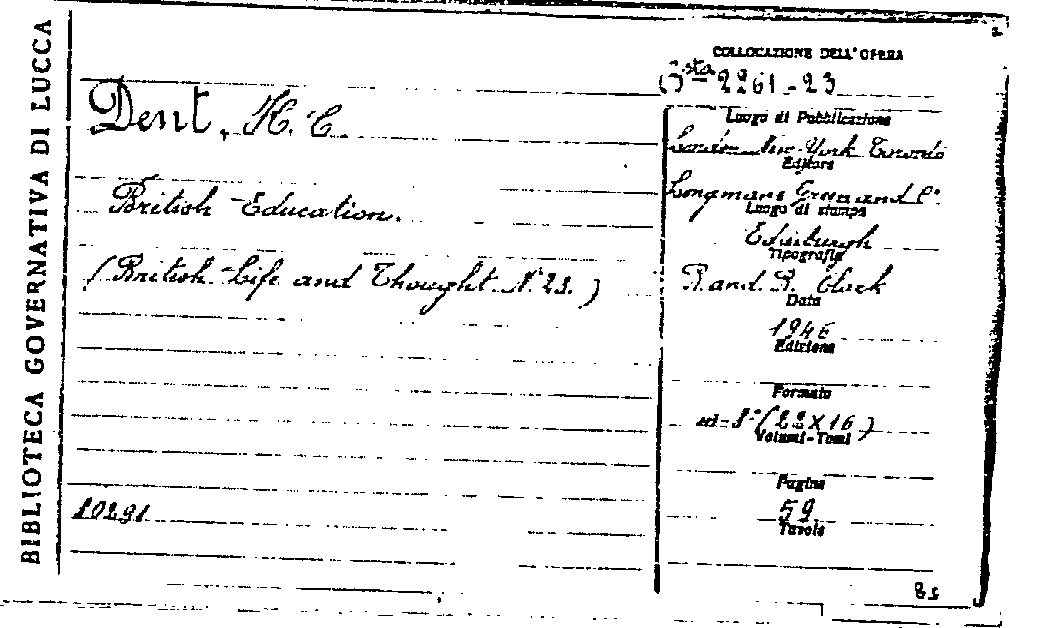 BIBLIOTECA GOVERNATIVA DI LUCCA
COLLOCAZIONE DELL'OPERA
Bsta 2261-23
Dent, H. C.
British Education.
(British Life and Thought N. 23.)
10291
Luogo di Pubblicazione
London New York Toronto
Editore
Longmans Green and Co
Luogo di stampa
Edinburgh
Tipografia
R. and R. Clark
Data
1946
Edizione
Formato
in-8° (22X16)
Volumi-Tomi
Pagine
59
Tavole